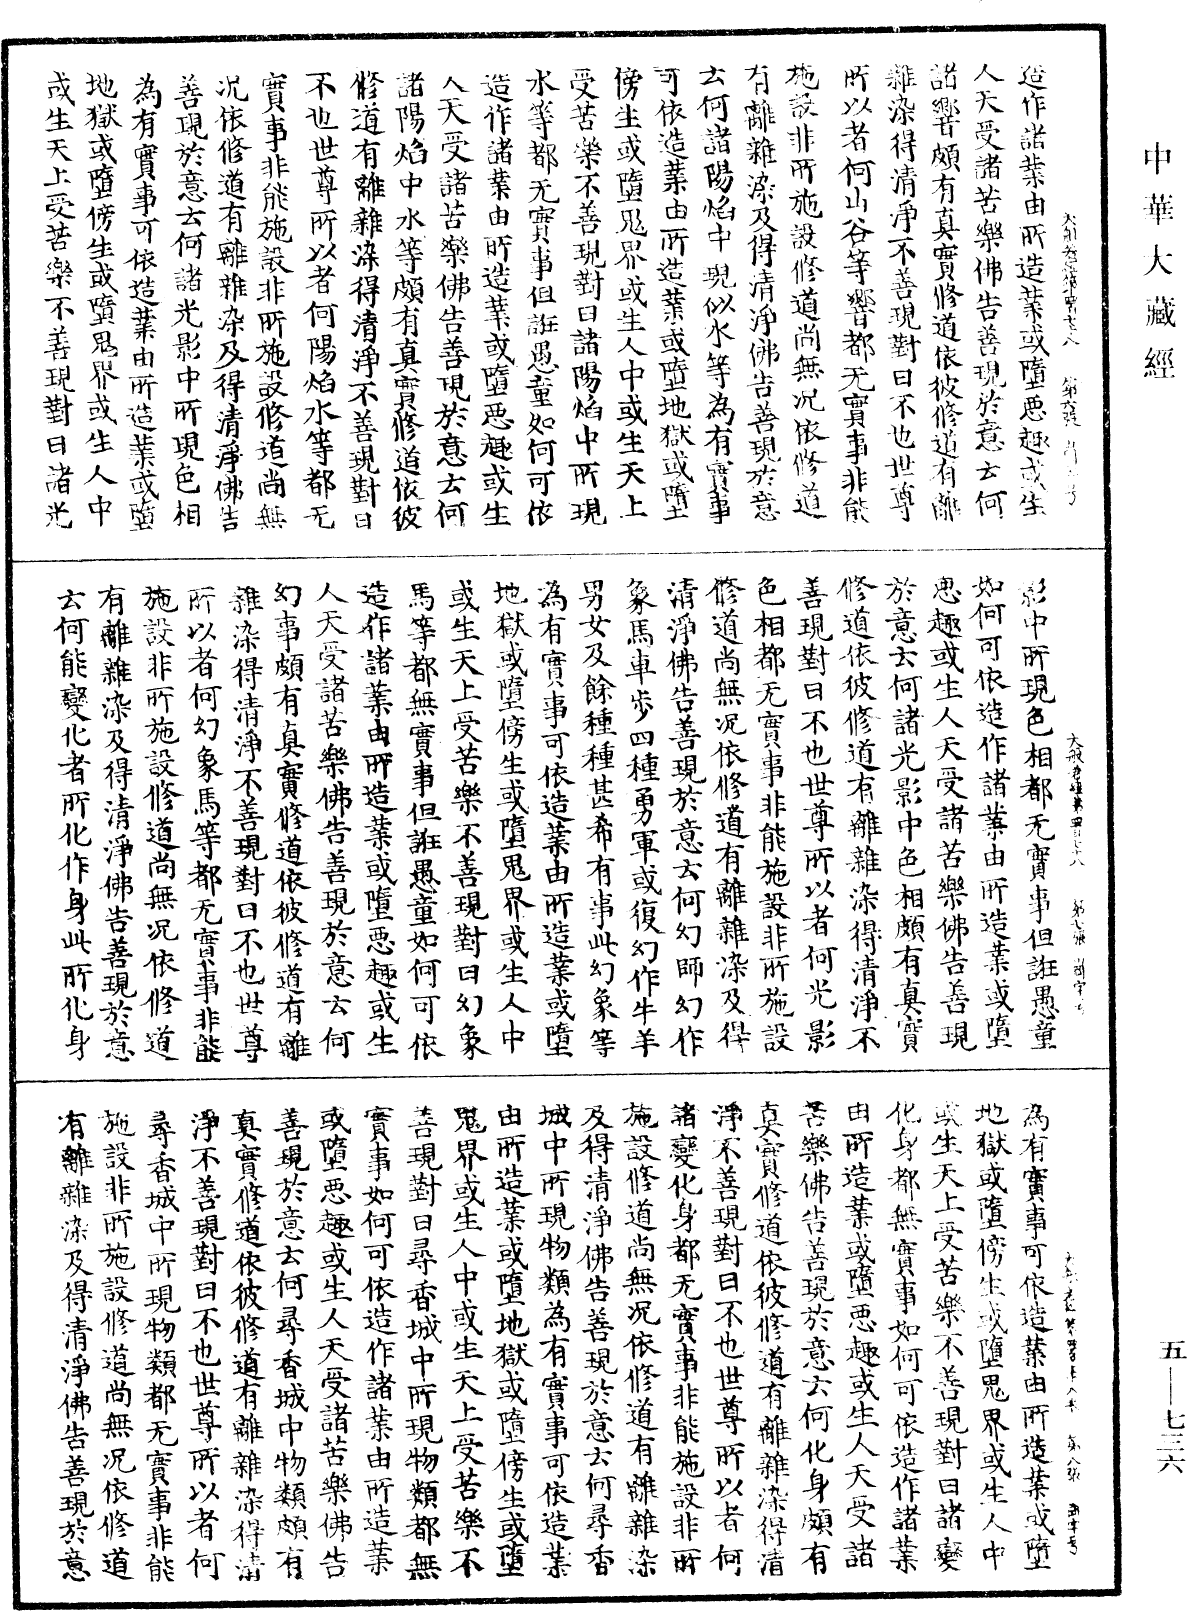 中華大藏經
造作諸業由所造業或墮惡趣或生
人天受諸苦樂佛告善現於意云何
諸響頗有真實修道依彼修道有離
雜染得清淨不善現對曰不也世尊
所以者何山谷等響都无實事非能
施設非所施設修道尚無況依修道
有離雜染及得清淨佛告善現於意
云何諸陽焰中現似水等為有實事
可依造業由所造業或墮地獄或墮
傍生或墮鬼界或生人中或生天上
受苦樂不善現對曰諸陽焰中所現
水等都无實事但誑愚童如何可依
造作諸業由所造業或墮惡趣或生
人天受諸苦樂佛告善現於意云何
諸陽焰中水等頗有真實修道依彼
修道有離雜染得清淨不善現對曰
不也世尊所以者何陽焰水等都无
實事非能施設非所施設修道尚無
況依修道有離雜染及得清淨佛告
善現於意云何諸光影中所現色相
為有實事可依造業由所造業或墮
地獄或墮傍生或墮鬼界或生人中
或生天上受苦樂不善現對曰諸光
影中所現色相都无實事但誑愚童
如何可依造作諸業由所造業或墮
惡趣或生人天受諸苦樂佛告善現
於意云何諸光影中色相頗有真實
修道依彼修道有離雜染得清淨不
善現對曰不也世尊所以者何光影
色相都无實事非能施設非所施設
修道尚無況依修道有離雜染及得
清淨佛告善現於意云何幻師幻作
象馬車步四種勇軍或復幻作牛羊
男女及餘種種甚希有事此幻象等
為有實事可依造業由所造業或墮
地獄或墮傍生或墮鬼界或生人中
或生天上受苦樂不善現對曰幻象
馬等都無實事但誑愚童如何可依
造作諸業由所造業或墮惡趣或生
人天受諸苦樂佛告善現於意云何
幻事頗有真實修道依彼修道有離
雜染得清淨不善現對曰不也世尊
所以者何幻象馬等都无實事非能
施設非所施設修道尚無況依修道
有離雜染及得清淨佛告善現於意
云何能變化者所化作身此所化身
為有實事可依造業由所造業或墮
地獄或墮傍生或墮鬼界或生人中
或生天上受苦樂不善現對曰諸變
化身都無實事如何可依造作諸業
由所造業或墮惡趣或生人天受諸
苦樂佛告善現於意云何化身頗有
真實修道依彼修道有離雜染得清
淨不善現對曰不也世尊所以者何
諸變化身都无實事非能施設非所
施設修道尚無況依修道有離雜染
及得清淨佛告善現於意云何尋香
城中所現物類為有實事可依造業
由所造業或墮地獄或墮傍生或墮
鬼界或生人中或生天上受苦樂不
善現對曰尋香城中所現物類都無
實事如何可依造作諸業由所造業
或墮惡趣或生人天受諸苦樂佛告
善現於意云何尋香城中物類頗有
真實修道依彼修道有離雜染得清
淨不善現對曰不也世尊所以者何
尋香城中所現物類都无實事非能
施設非所施設修道尚無況依修道
有離雜染及得清淨佛告善現於意
五—七三六